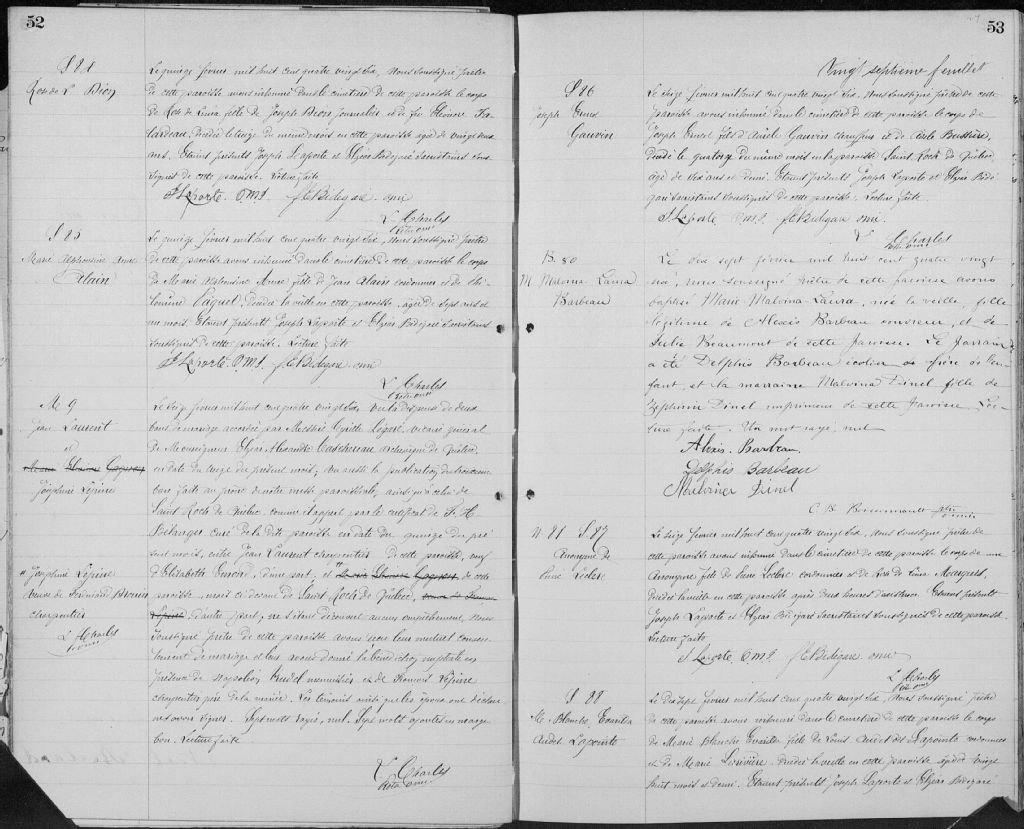 52
S 84
Rose de L. Dion
Le quinze février mil huit cent quatre vingt six, Nous soussigné prêtre
de cette paroisse avons inhumé dans le cimetière de cette paroisse le corps
de Rose de Lima fille de Joseph Dion journalier et de feu Eléonore
décédée le treize du même mois en cette paroisse agée de vingt deux
ans. Etaient présents Joseph Laporte et Elzéar Bédigaré Sacristains sous-
signés de cette paroisse. Lecture faite
J. Laporte. O.M.I. J. E Bédigaré omi
L. Charles
Ptre omi
S 85
Marie Alphonsine Anne
Alain
Le quinze février mil huit cent quatre vingt six, Nous soussigné prêtre
de cette paroisse avons inhumé dans le cimetière de cette paroisse le corps
de Marie Alphonsine Anne fille de Jean Alain cordonnier et de Phi-
lomène Paquet, décédée la veille en cette paroisse, agée de sept ans et
un mois. Etaient présents Joseph Laporte et Elzéar Bédigaré Sacristains
soussignés de cette paroisse. Lecture faite
J. Laporte. O.M.I. J. E Bédigaré omi
L. Charles
Ptre omi
M 9
Jean Laurent
et
Joséphine Lépine
Le seize février mil huit cent quatre vingt six, Vu la dispense de deux
bans de mariage accordée par Messire Cyrille Légaré, vicaire général
de Monseigneur Elzéar Alexandre Taschereau archevêque de Québec,
en date du treize du présent mois; Vu aussi la publication du troisième
ban faite au prône de notre messe paroissiale, ainsi qu'à celui de
Saint Roch de Québec comme il appert par le certificat de F. H.
Bélanger curé de la dite paroisse en date du quinze du pré-
sent mois, entre Jean Laurent charpentier de cette paroisse, veuf
d'Elisabeth Emond, d'une part, et " de cette
" Joséphine Lépine
veuve de Ferdinand
charpentier
L. Charles
ptre omi
paroisse, mais ci-devant de Saint Roch de Québec,
d'autre part; ne s'étant découvert aucun empêchement, Nous
soussigné prêtre de cette paroisse avons reçu leur mutuel consen-
tement de mariage et leur avons donné la bénédiction nuptiale en
présence de Napoléon menuisier et de Lépine
charpentier père de la mariée. Les témoins ainsi que les époux ont déclaré
ne savoir signer. Sept mots rayés, nul. Sept mots ajoutés en marge
bon. Lecture faite
L. Charles
Ptre omi
53
Vingt septième feuillet
S 86
Joseph Ernest
Gauvin
Le seize février mil huit cent quatre vingt six, Nous soussigné prêtre de cette
paroisse avons inhumé dans le cimetière de cette paroisse, le corps de
Joseph Ernest fils d'Aurèle Gauvin et de Bussière,
décédé le quatorze du même mois en la paroisse Saint Roch de Québec,
agé de six ans et demi. Etaient présents Joseph Laporte et Elzéar Bédi-
garé Sacristains soussignés de cette paroisse. Lecture faite.
J. Laporte O.M.I. J. E Bédigaré omi.
L. Charles
Ptre omi
B. 80
M. Malvina Laura
Barbeau
Le dix sept février mil huit cent quatre vingt
six, nous soussigné prêtre de cette paroisse avons
baptisé Marie Malvina Laura, née la veille, fille
légitime de Alexis Barbeau couvreur, et de
Julie Beaumont de cette paroisse. Le parrain
a été Delphis Barbeau écolier frère de l'en-
fant, et la marraine Malvina Dinel fille de
Zéphirin Dinel imprimeur de cette paroisse. Lec-
ture faite. Un mot rayé, nul
Alexis. Barbeau
Delphis Barbeau
Malvina Dinel
ptre
N. 81 S. 87
Anonyme de
Pierre Leclerc
Le seize février mil huit cent quatre vingt six, Nous soussigné prêtre de
cette paroisse avons inhumé dans le cimetière de cette paroisse le corps de une
Anonyme fille de Pierre Leclerc cordonnier et de Rose de Lima Marquis,
décédée la veille en cette paroisse après deux heures d'existence. Etaient présents
Joseph Laporte et Elzéar Bédigaré Sacristains soussignés de cette paroisse.
Lecture faite
J. Laporte O.M.I. J. E Bédigaré omi
L. Charles
Ptre omi
S 88
M. Blanche
Audet Lapointe
Le dix sept février mil huit cent quatre vingt six, Nous soussigné prêtre
de cette paroisse avons inhumé dans le cimetière de cette paroisse le corps
de Marie Blanche fille de Louis Audet dit Lapointe cordonnier
et de Marie Larivière, décédée la veille en cette paroisse agée de vingt
huit mois et demi. Etaient présents Joseph Laporte et Elzéar Bédigaré